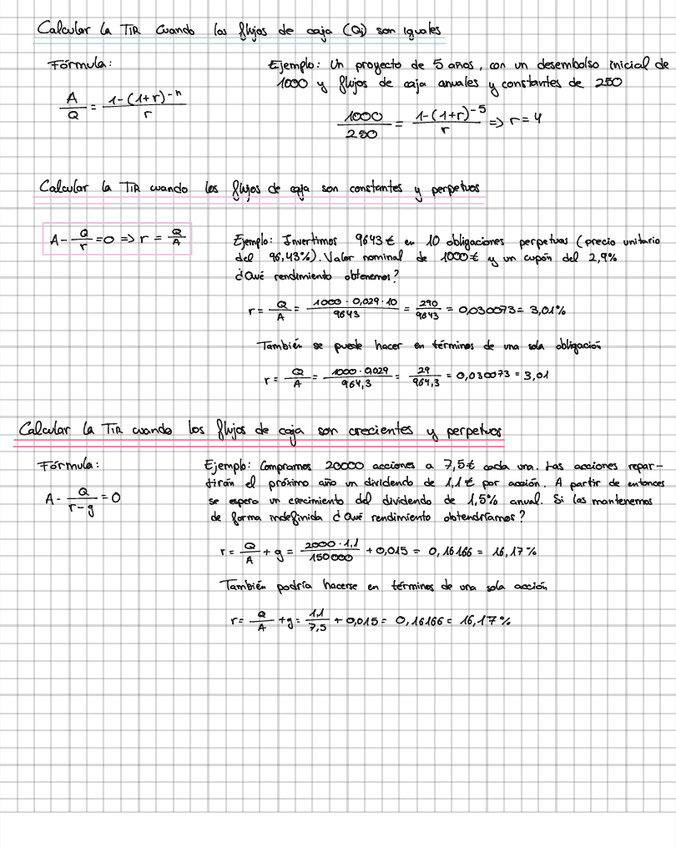 Calcular la TIR cuando los flujos de caja (Qi) son iguales
Fórmula:
A/Q = 1-(1+r)-n / r
Ejemplo: Un proyecto de 5 años, con un desembolso inicial de
1000 y flujos de caja anuales y constantes de 250
1000/250 = 1-(1+r)-5 / r => r=4
Calcular la TIR cuando los flujos de caja son constantes y perpetuos
A - Q/r = 0 => r = Q/A
Ejemplo: Invertimos 9643€ en 10 obligaciones perpetuas (precio unitario
del 96,43%). Valor nominal de 1000€ y un cupón del 2,9%
¿Qué rendimiento obtenemos?
r = Q/A = 1000·0,029·10 / 9643 = 290/9643 = 0,030073 = 3,01%
También se puede hacer en términos de una sola obligación
r = Q/A = 1000·0,029 / 964,3 = 29/964,3 = 0,030073 = 3,01
Calcular la TIR cuando los flujos de caja son crecientes y perpetuos
Fórmula:
A - Q/r-g = 0
Ejemplo: Compramos 20000 acciones a 7,5€ cada una. Las acciones repar-
tirán el próximo año un dividendo de 1,1€ por acción. A partir de entonces
se espera un crecimiento del dividendo de 1,5% anual. Si las mantenemos
de forma indefinida ¿Qué rendimiento obtendríamos?
r = Q/A + g = 2000·1,1 / 150000 + 0,015 = 0,16166 = 16,17%
También podría hacerse en términos de una sola acción
r = Q/A + g = 1,1/7,5 + 0,015 = 0,16166 = 16,17%